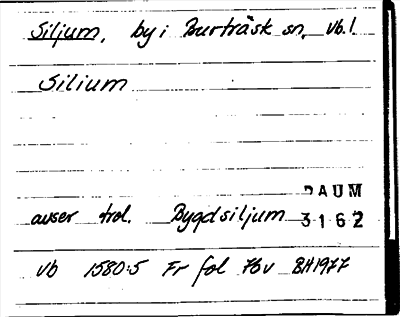 Siljum, by i Burträsk sn, Vb.l.
Silium
DAUM
avser trol. Bygdsiljum 3162
Vb 1580:5 Fr fol 76v BH1977